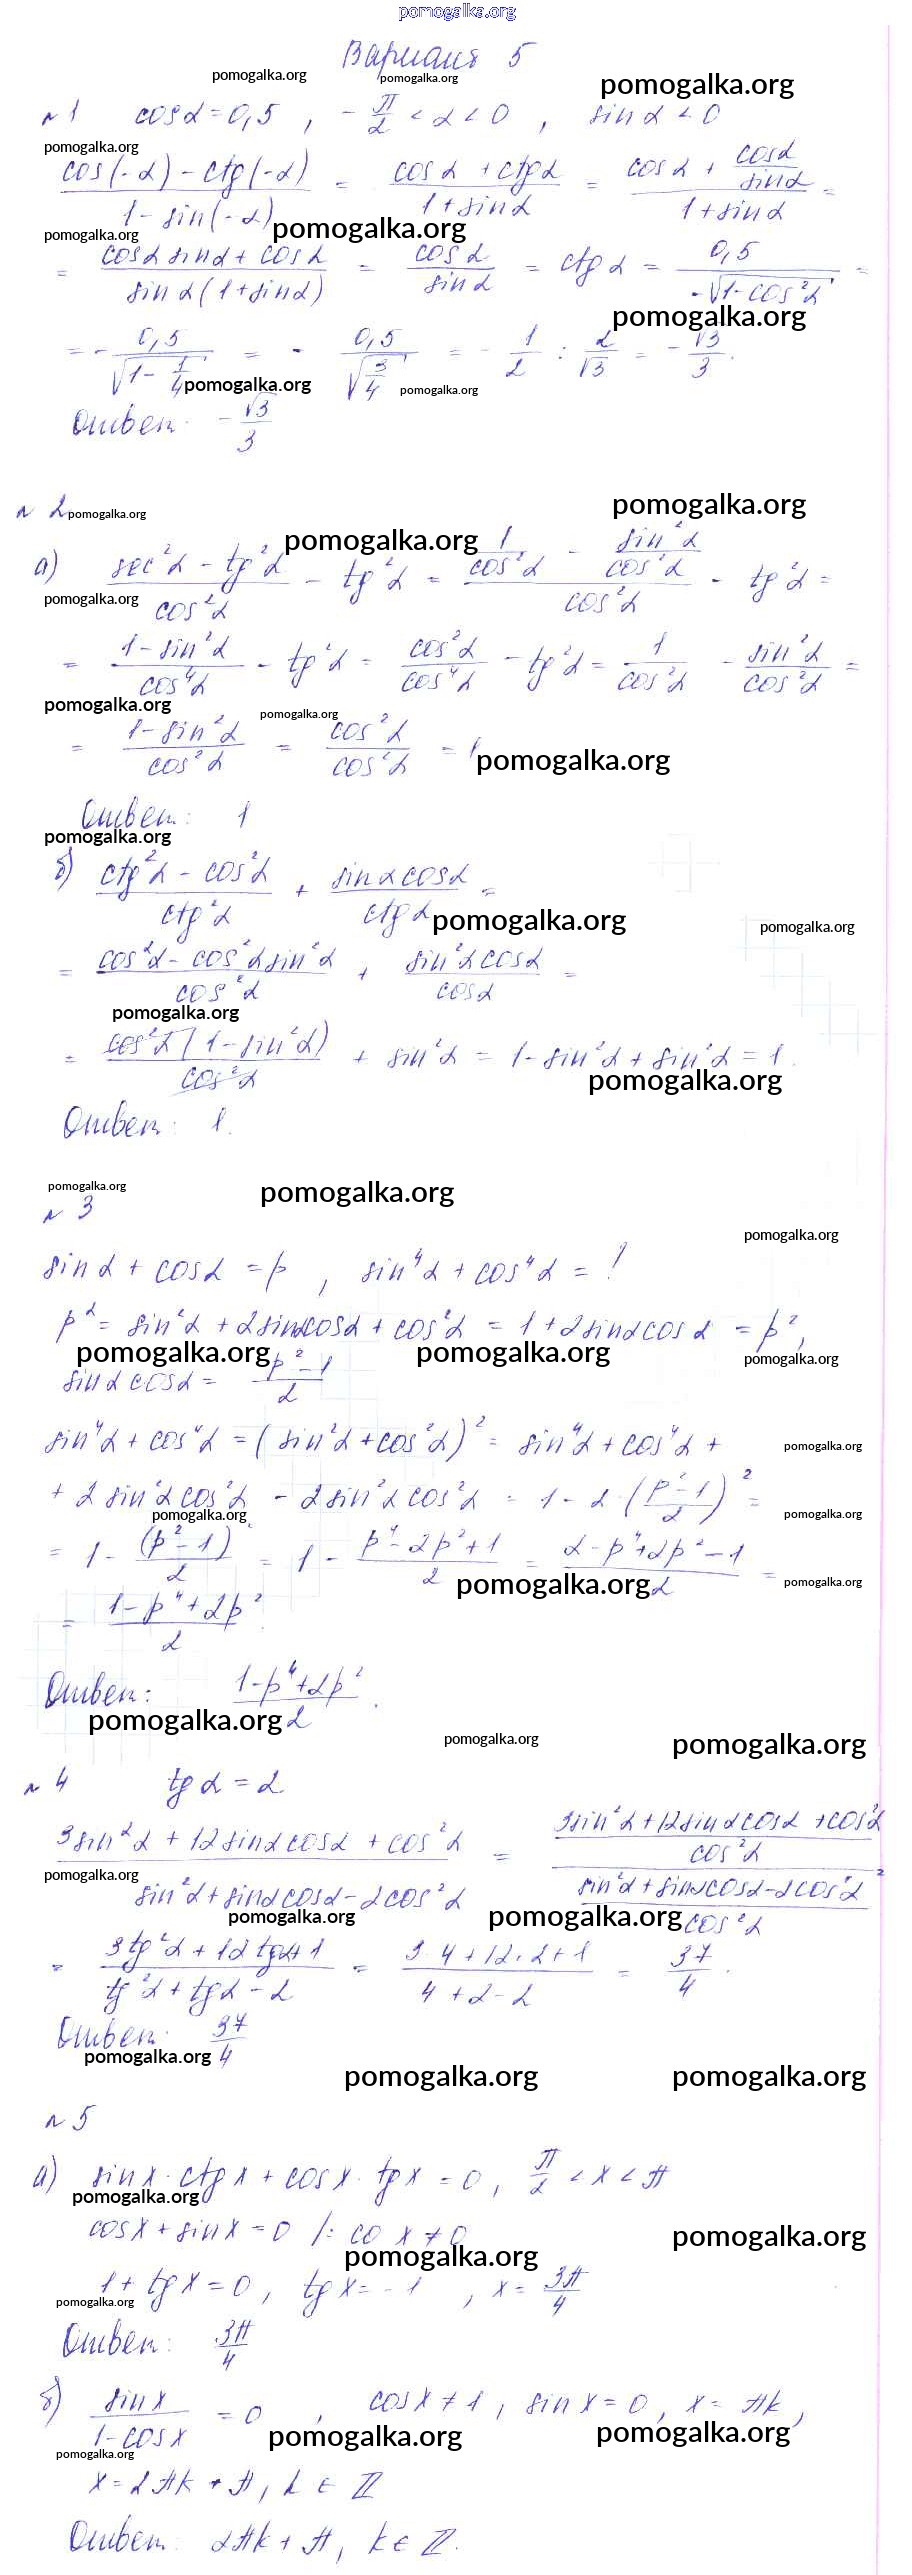 pomogalka.org
Вариант 5
pomogalka.org pomogalka.org pomogalka.org
№1 cos α = 0,5 , -π/2 < α < 0 , sin α < 0
pomogalka.org
(cos(-α) - ctg(-α))/(1 - sin(-α)) = (cos α + ctg α)/(1 + sin α) = (cos α + cos α/sin α)/(1 + sin α) =
pomogalka.org pomogalka.org
= (cos α sin α + cos α)/(sin α(1 + sin α)) = cos α/sin α = ctg α = 0,5/(-√(1 - cos²α)) =
pomogalka.org
= - 0,5/√(1 - 1/4) = - 0,5/√(3/4) = - 1/2 : 2/√3 = - √3/3.
pomogalka.org pomogalka.org
Ответ: - √3/3
№ 2 pomogalka.org pomogalka.org
pomogalka.org
а) (sec²α - tg²α)/cos²α - tg²α = (1/cos²α - sin²α/cos²α)/cos²α - tg²α =
pomogalka.org
= (1 - sin²α)/cos⁴α - tg²α = cos²α/cos⁴α - tg²α = 1/cos²α - sin²α/cos²α =
pomogalka.org pomogalka.org
= (1 - sin²α)/cos²α = cos²α/cos²α = 1
pomogalka.org
Ответ: 1
pomogalka.org
б) (ctg²α - cos²α)/ctg²α + sin α cos α/ctg α =
pomogalka.org pomogalka.org
= (cos²α - cos²α sin²α)/cos²α + sin²α cos α/cos α =
pomogalka.org
= cos²α(1 - sin²α)/cos²α + sin²α = 1 - sin²α + sin²α = 1.
pomogalka.org
Ответ: 1.
pomogalka.org pomogalka.org
№ 3
pomogalka.org
sin α + cos α = p , sin⁴α + cos⁴α = ?
p² = sin²α + 2sin α cos α + cos²α = 1 + 2sin α cos α = p²,
pomogalka.org pomogalka.org pomogalka.org
sin α cos α = (p² - 1)/2
sin⁴α + cos⁴α = (sin²α + cos²α)² = sin⁴α + cos⁴α +
pomogalka.org
+ 2 sin²α cos²α - 2 sin²α cos²α = 1 - 2·((p² - 1)/2)² =
pomogalka.org pomogalka.org
= 1 - (p² - 1)²/2 = 1 - (p⁴ - 2p² + 1)/2 = (2 - p⁴ + 2p² - 1)/2 =
pomogalka.org pomogalka.org
= (1 - p⁴ + 2p²)/2.
Ответ: (1 - p⁴ + 2p²)/2.
pomogalka.org
pomogalka.org pomogalka.org
№ 4 tg α = 2
(3sin²α + 12sin α cos α + cos²α)/(sin²α + sin α cos α - 2cos²α) = ((3sin²α + 12sin α cos α + cos²α)/cos²α)/((sin²α + sin α cos α - 2cos²α)/cos²α) =
pomogalka.org
pomogalka.org pomogalka.org
= (3tg²α + 12tg α + 1)/(tg²α + tg α - 2) = (3·4 + 12·2 + 1)/(4 + 2 - 2) = 37/4.
Ответ: 37/4
pomogalka.org
pomogalka.org pomogalka.org
№ 5
а) sin x · ctg x + cos x · tg x = 0, π/2 < x < π
pomogalka.org
cos x + sin x = 0 /: co x ≠ 0
pomogalka.org
pomogalka.org
1 + tg x = 0, tg x = -1 , x = 3π/4
pomogalka.org
Ответ: 3π/4
б) sin x/(1 - cos x) = 0 , cos x ≠ 1, sin x = 0, x = πk,
pomogalka.org pomogalka.org
pomogalka.org
x = 2πk + π, k ∈ ℤ
Ответ: 2πk + π, k ∈ ℤ.